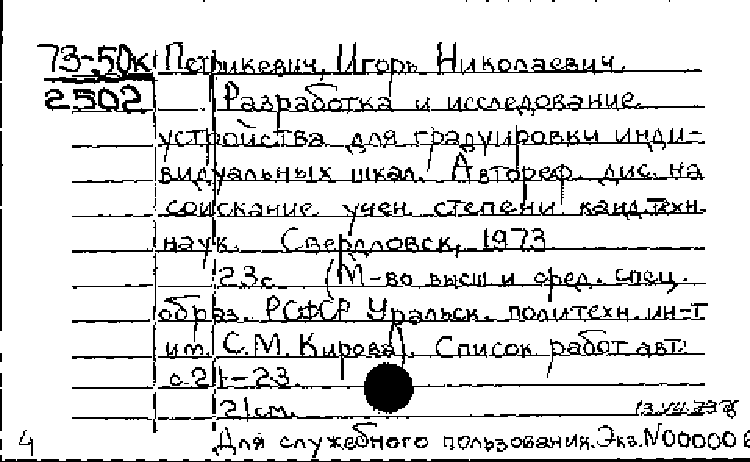 73-50к Петрикевич, Игорь Николаевич.
2502 Разработка и исследование
устройства для градуировки инди-
видуальных шкал. Автореф. дис. на
соискание учен. степени канд. техн.
наук. Свердловск, 1973
23с. (М-во высш и сред. спец.
образ. РСФСР Уральск. политехн. ин-т
им. С.М. Кирова). Список работ авт:
с.21-23.
21см.
4 Для служебного пользования. Экз.N000006